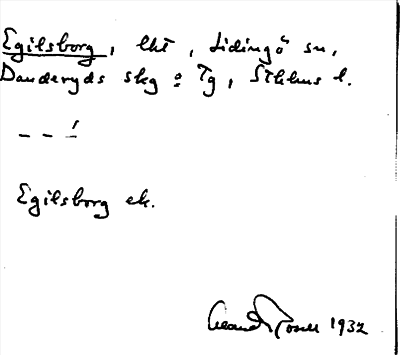 Egilsborg, lht, Lidingö sn,
Danderyds skg o Tg, Sthlms l.
– – –́
Egilsborg ek.
1932